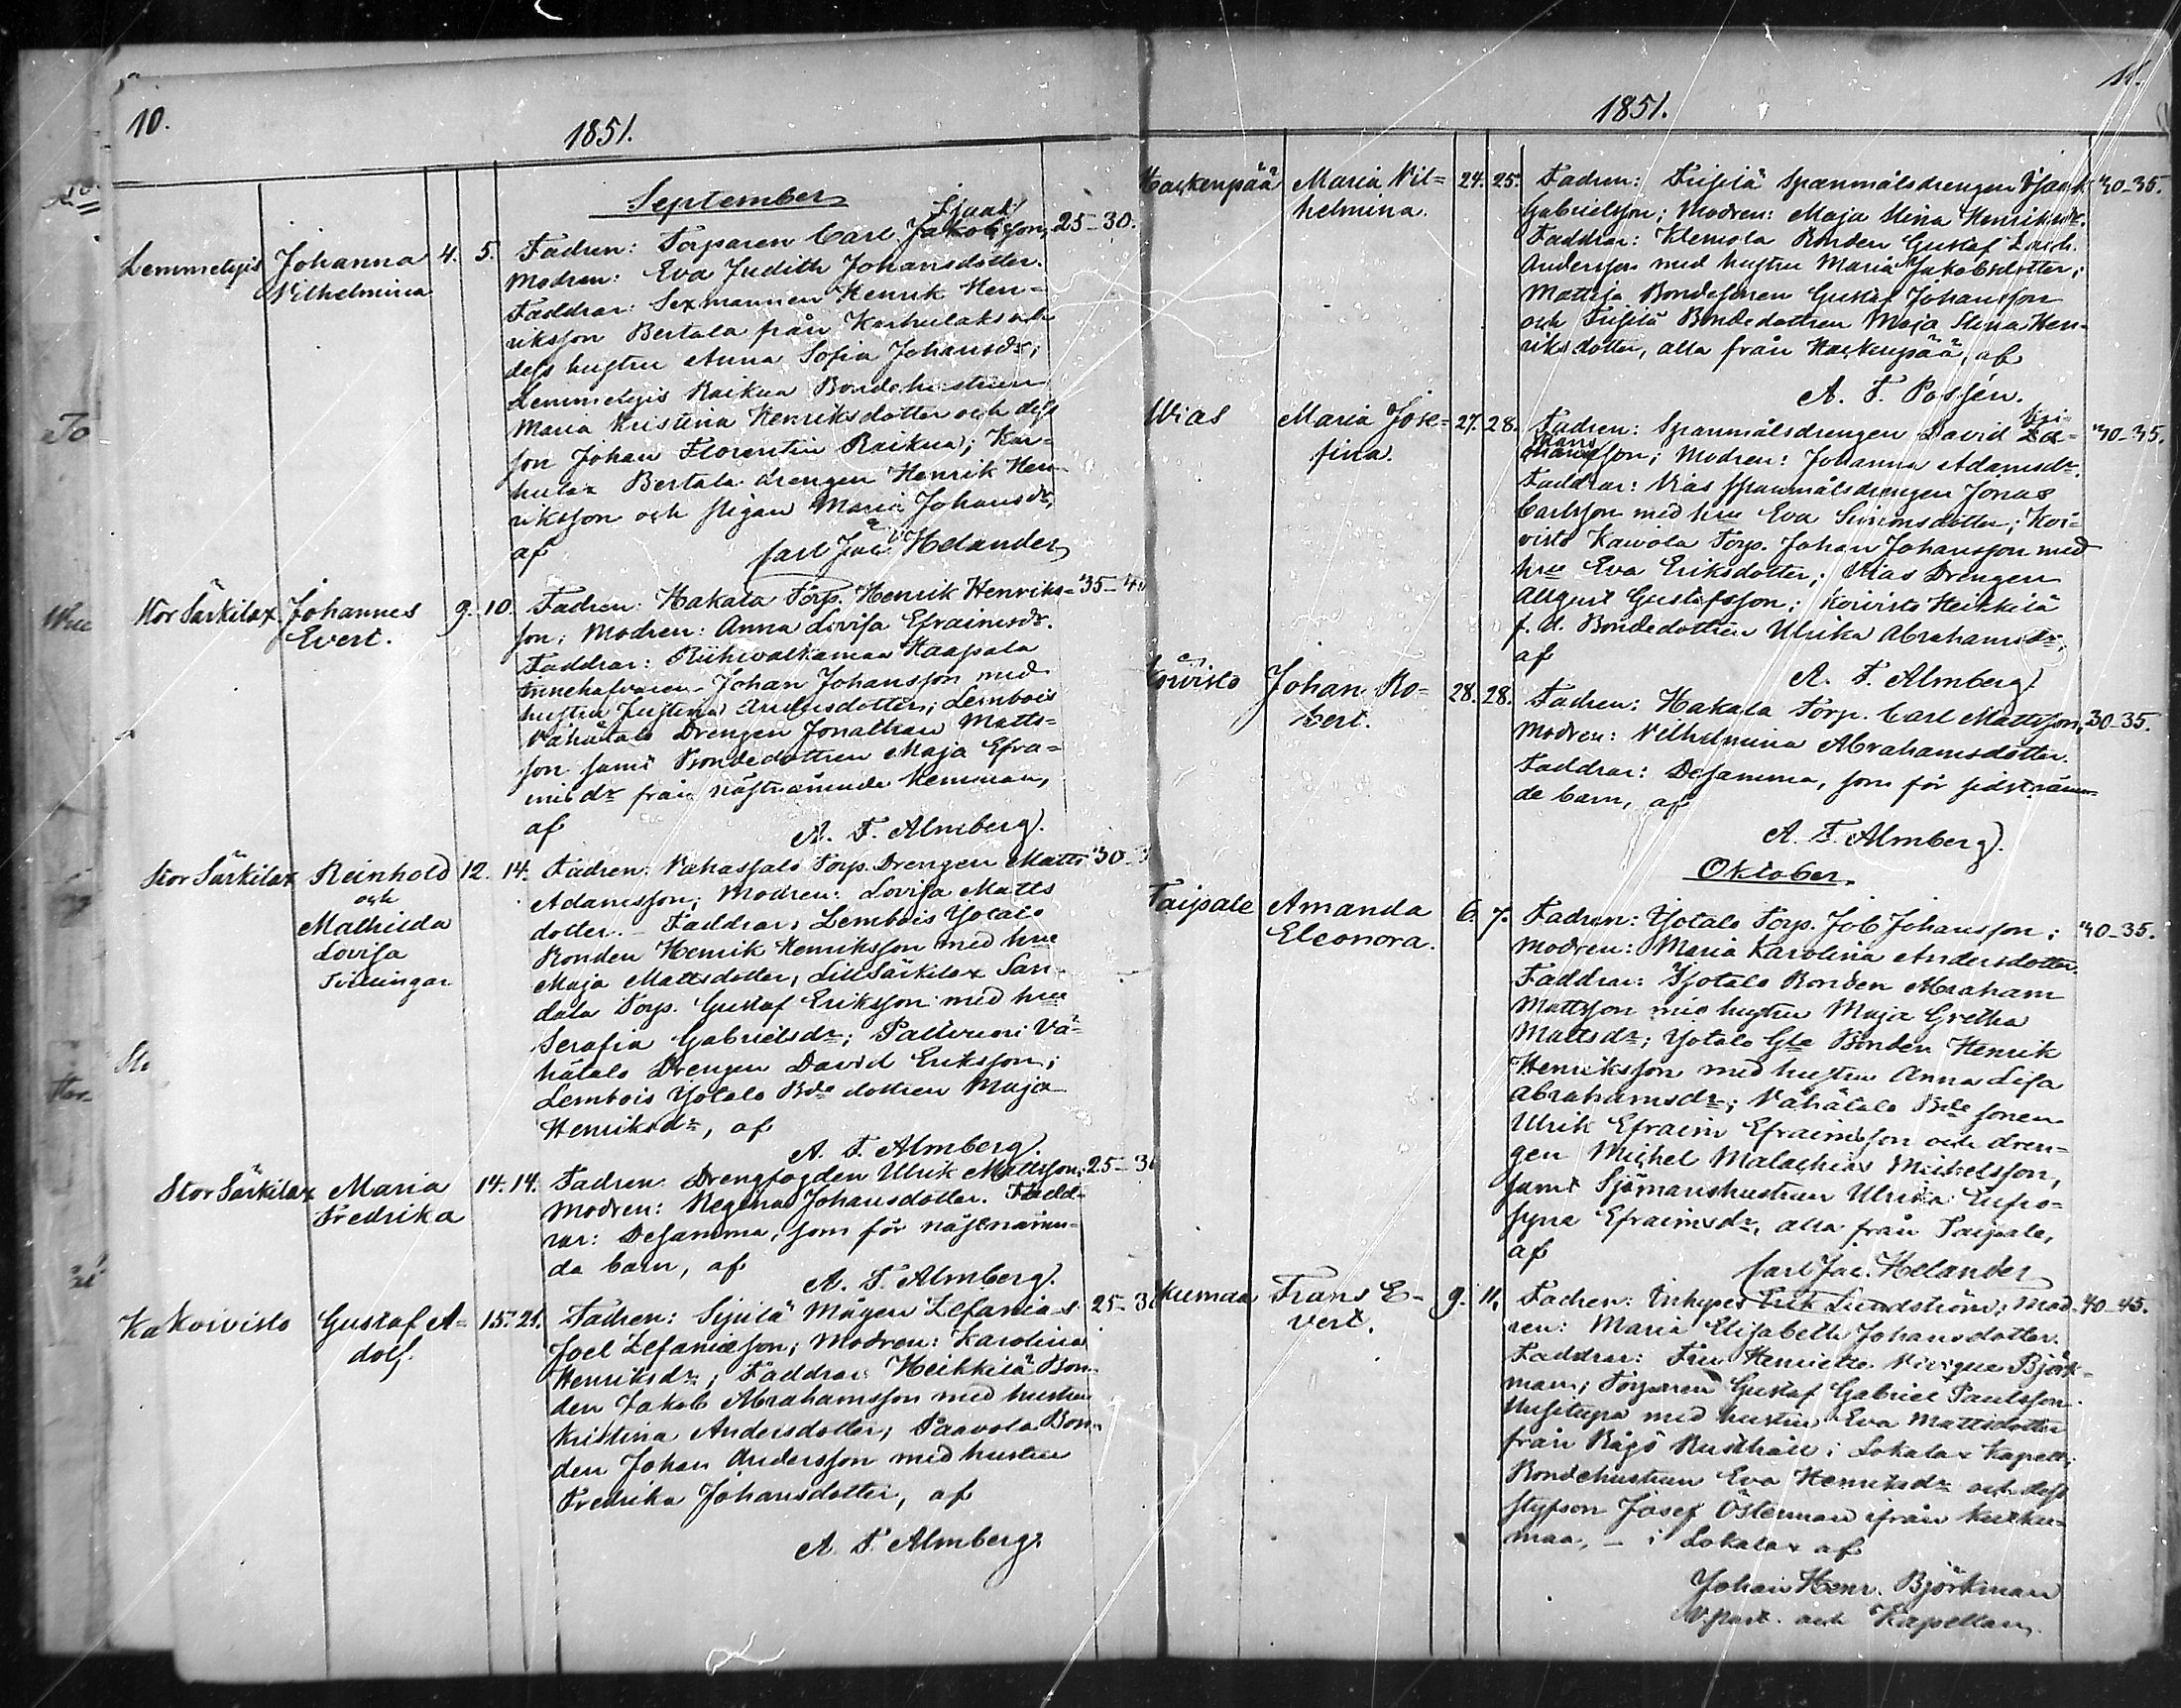 10.
1851.
September
Lemmetyis
Johanna
Vilhelmina
4. 5.
Fadren: Torparen Carl Jakobsson, 25–30.
Isaak
Modren: Eva Judith Johansdotter.
Faddrar: Sexmannen Henrik Hen-
riksson Bertala från Karhulaks och
dess hustru Anna Sofia Johansdr;
Lemmetyis Raikua Bondehustrun
Maria Kristina Henriksdotter och dess
son Johan Florentin Raikua; Kar-
hulax Bertala drengen Henrik Hen-
riksson och pigan Maria Johansdr,
af
Carl Jac. Helander
Stor Särkilax
Johannes
Evert.
9. 10.
Fadren: Hakala Torp. Henrik Henriks- 35–40
son; Modren: Anna Lovisa Efraimsdr.
Faddrar: Riihivalkamaa Haapala
Innehafvaren Johan Johansson med
hustru Justina Andersdotter; Lembois
Vähätalo Drengen Jonathan Matts-
son samt Bondedottren Maja Efra-
imsdr från nästnämnde hemman,
af
A. F. Almberg.
Stor Särkilax
Reinhold
och
Mathilda
Lovisa
Tvillingar
12. 14.
Fadren: Torp. Drengen Matts 30–
Adamsson; Modren: Lovisa Matts
dotter. – Faddrar: Lembois Yotalo
Bonden Henrik Henriksson med hru
Maja Mattsdotter, Lill Särkilax San-
dala Torp. Gustaf Eriksson med hru
Serafia Gabrielsdr; Palluvuori Vä-
hätalo Drengen David Eriksson;
Lembois Yotalo Bde dottren Maja
Henriksdr, af
A. F. Almberg.
Stor Särkilax
Maria
Fredrika
14. 14.
Fadren Drengfogden Ulrik Mattsson; 25–30
Modren: Regina Johansdotter. Fadd-
rar: Desamma, som för nästnämn-
da barn, af
A. F. Almberg.
Koivisto
Gustaf A-
dolf.
15. 21.
Fadren: Sijulä Mågen Zefanias 25–30
Joel Zefaniasson; Modren: Karolina
Henriksdr; Faddrar: Heikkilä Bon-
den Jakob Abrahamsson med hustru
Kristina Andersdotter, Paavola Bon-
den Johan Andersson med hustru
Fredrika Johansdotter, af
A. F. Almberg.
11.
1851.
Haskenpää
Maria Vil-
helmina.
24. 25.
Fadren: Frisilä Spanmålsdrengen Isaak 30–35.
Gabrielsson; Modren: Maja Stina Henriksdr.
Faddrar: Klemola Bonden Gustaf Zach.
Andersson med hustru Maria Jakobsdotter;
Mattila Bondesonen Gustaf Johansson
och Frisilä Bondedottren Maja Stina Hen-
riksdotter, alla från Haskenpää, af
A. F. Passén.
Wias
Maria Jose-
fina.
27. 28.
Fadren: Spanmålsdrengen David 30–35.
son; Modren: Johanna Adamsdr.
Faddrar: Wias Spanmålsdrengen Jonas
Carlsson med hru Eva Simonsdotter; Koi-
visto Kaivola Torp. Johan Johansson med
hru Eva Eriksdotter; Wias Drengen
August Gustafsson; Koivisto Heikkilä
f. d. Bondedottren Ulrika Abrahamsdr,
af
A. F. Almberg.
Koivisto
Johan Ro-
bert.
28. 28.
Fadren: Hakala Torp. Carl Mattsson; 30–35.
Modren: Vilhelmina Abrahamsdotter.
Faddrar: Desamma, som för sidstnämn-
de barn, af
A. F. Almberg.
Oktober.
Taipale
Amanda
Eleonora.
6. 7.
Fadren: Yotalo Torp. Job Johansson; 30–35.
Modren: Maria Karolina Andersdotter.
Faddrar: Yotalo Bonden Abraham
Mattsson med hustru Maja Gretha
Mattsdr; Yotalo Gla Bonden Henrik
Henriksson med hustru Anna Lisa
Abrahamsdr; Vähätalo Bde sonen
Ulrik Efraim Efraimsson och dren-
gen Michel Malachias Michelsson,
samt Sjömanshustrun Ulrika Eufro-
syna Efraimsdr, alla från Taipale,
af
Carl Jac. Helander
Frans E-
vert.
9. 11.
Fadren: Inhyses Erik Lundström; Mod- 40–45.
ren: Maria Elisabeth Johansdotter.
Faddrar: Fru Henrietta Björk-
man; Torparen Gustaf Gabriel Paulsson
med hustru Eva Mattsdotter
från Rågö Rusthåll i Lokalax Kapell;
Bondehustrun Eva Henriksdr och dess
styfson Josef Österman ifrån Kurku-
maa, – i Lokalax af
Johan Henr. Björkman
V. Past. och Kapellan.